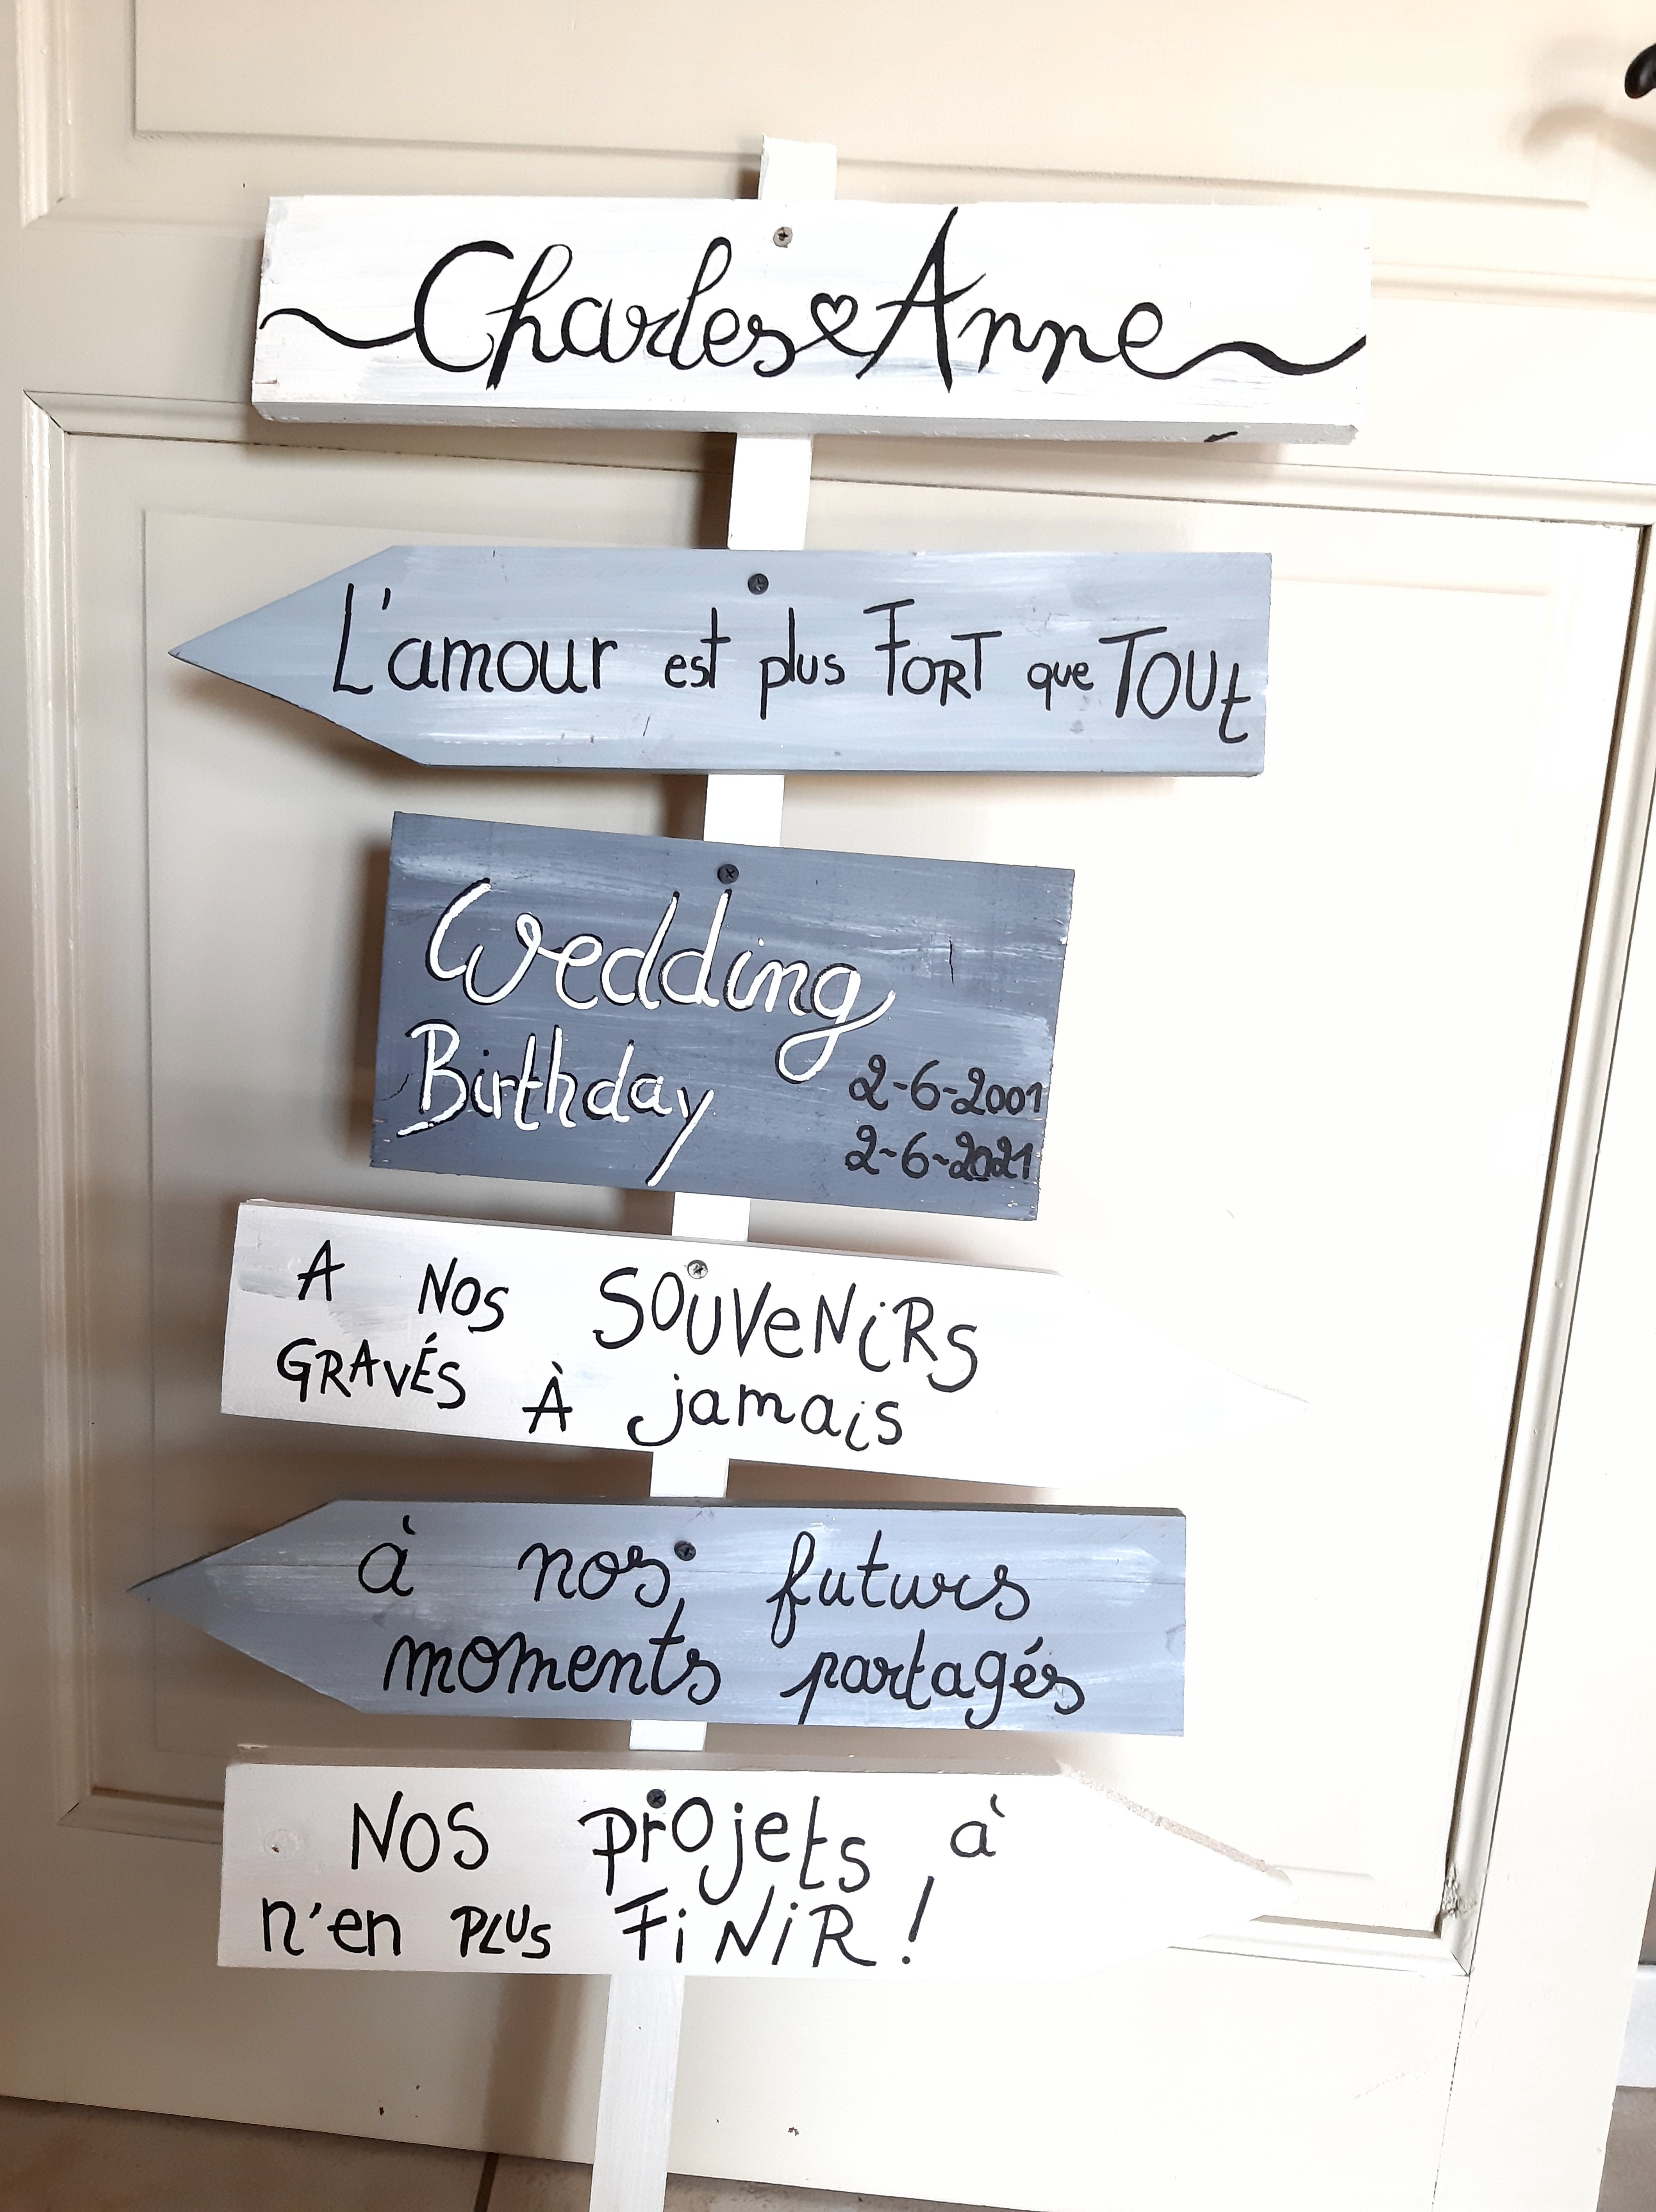 Charles ♡ Anne
L'amour est plus FORT que TOUt
Wedding
Birthday
2-6-2001
2-6-2021
A NOS SOUVeNiRS
GRAVÉS À jamais
à nos futurs
moments partagés
NOS prOjets à
n'en PLUS FiNiR !